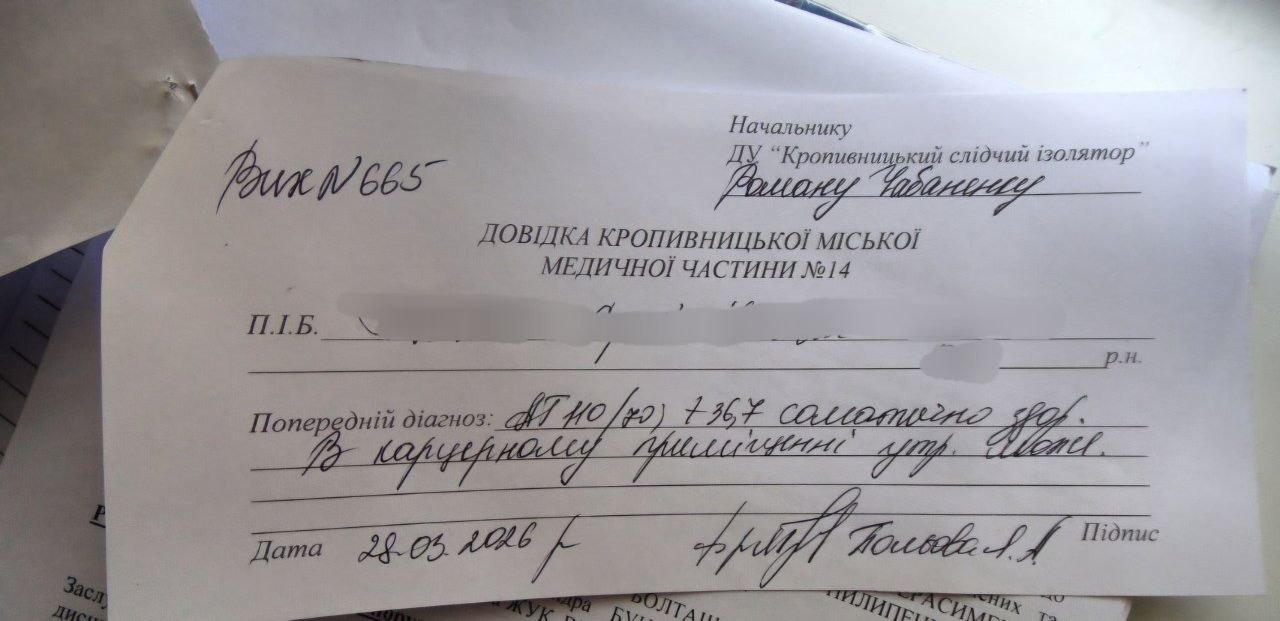 Начальнику
ДУ "Кропивницький слідчий ізолятор"
Роману Чабаненку
Вих N 665
ДОВІДКА КРОПИВНИЦЬКОЇ МІСЬКОЇ
МЕДИЧНОЇ ЧАСТИНИ №14
П.І.Б.
р.н.
Попередній діагноз: АТ 110/70, t 36,7 соматично здор.
В карцерному приміщенні утр. може.
Дата 28.03.2026 р Польова Л. Підпис
Засл
дисц
ЖУК
БОЛТАШ
ПИЛИПЕН